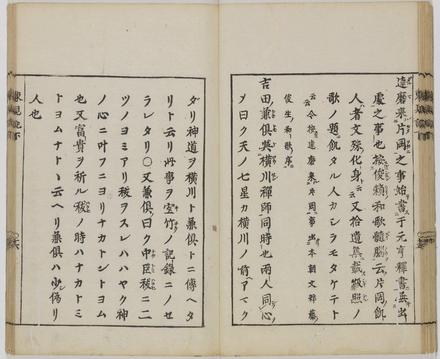 達磨来片岡之事始書于元亨釈書無出
處之事也按俊頼和歌髄脳云片岡飢
人者文殊化身云又拾遺集載救照ノ
歌ノ題飢タル人カシラモタケテト
云云今按達磨来片岡事出本朝文粋藤
俊生和歌序
吉田兼倶與横川禅師同時也両人同心
ノ曰ク天ノ七星カ横川ノ前アマク
ダリ神道ヲ横川ト兼倶トニ傳ヘタ
リト云リ此事ヲ宝竹ノ記録ニノセ
ラレタリ〇又兼倶曰ク中臣祓ニ二
ツノヨミアリ祓ヲスレハハヤク神
ノ心ニ叶フニヨリナカトントヨム
也又富貴ヲ祈ル祓ノ時ハナカトミ
トヨムナト丶云ヘリ兼倶ハ少偽リ
人也